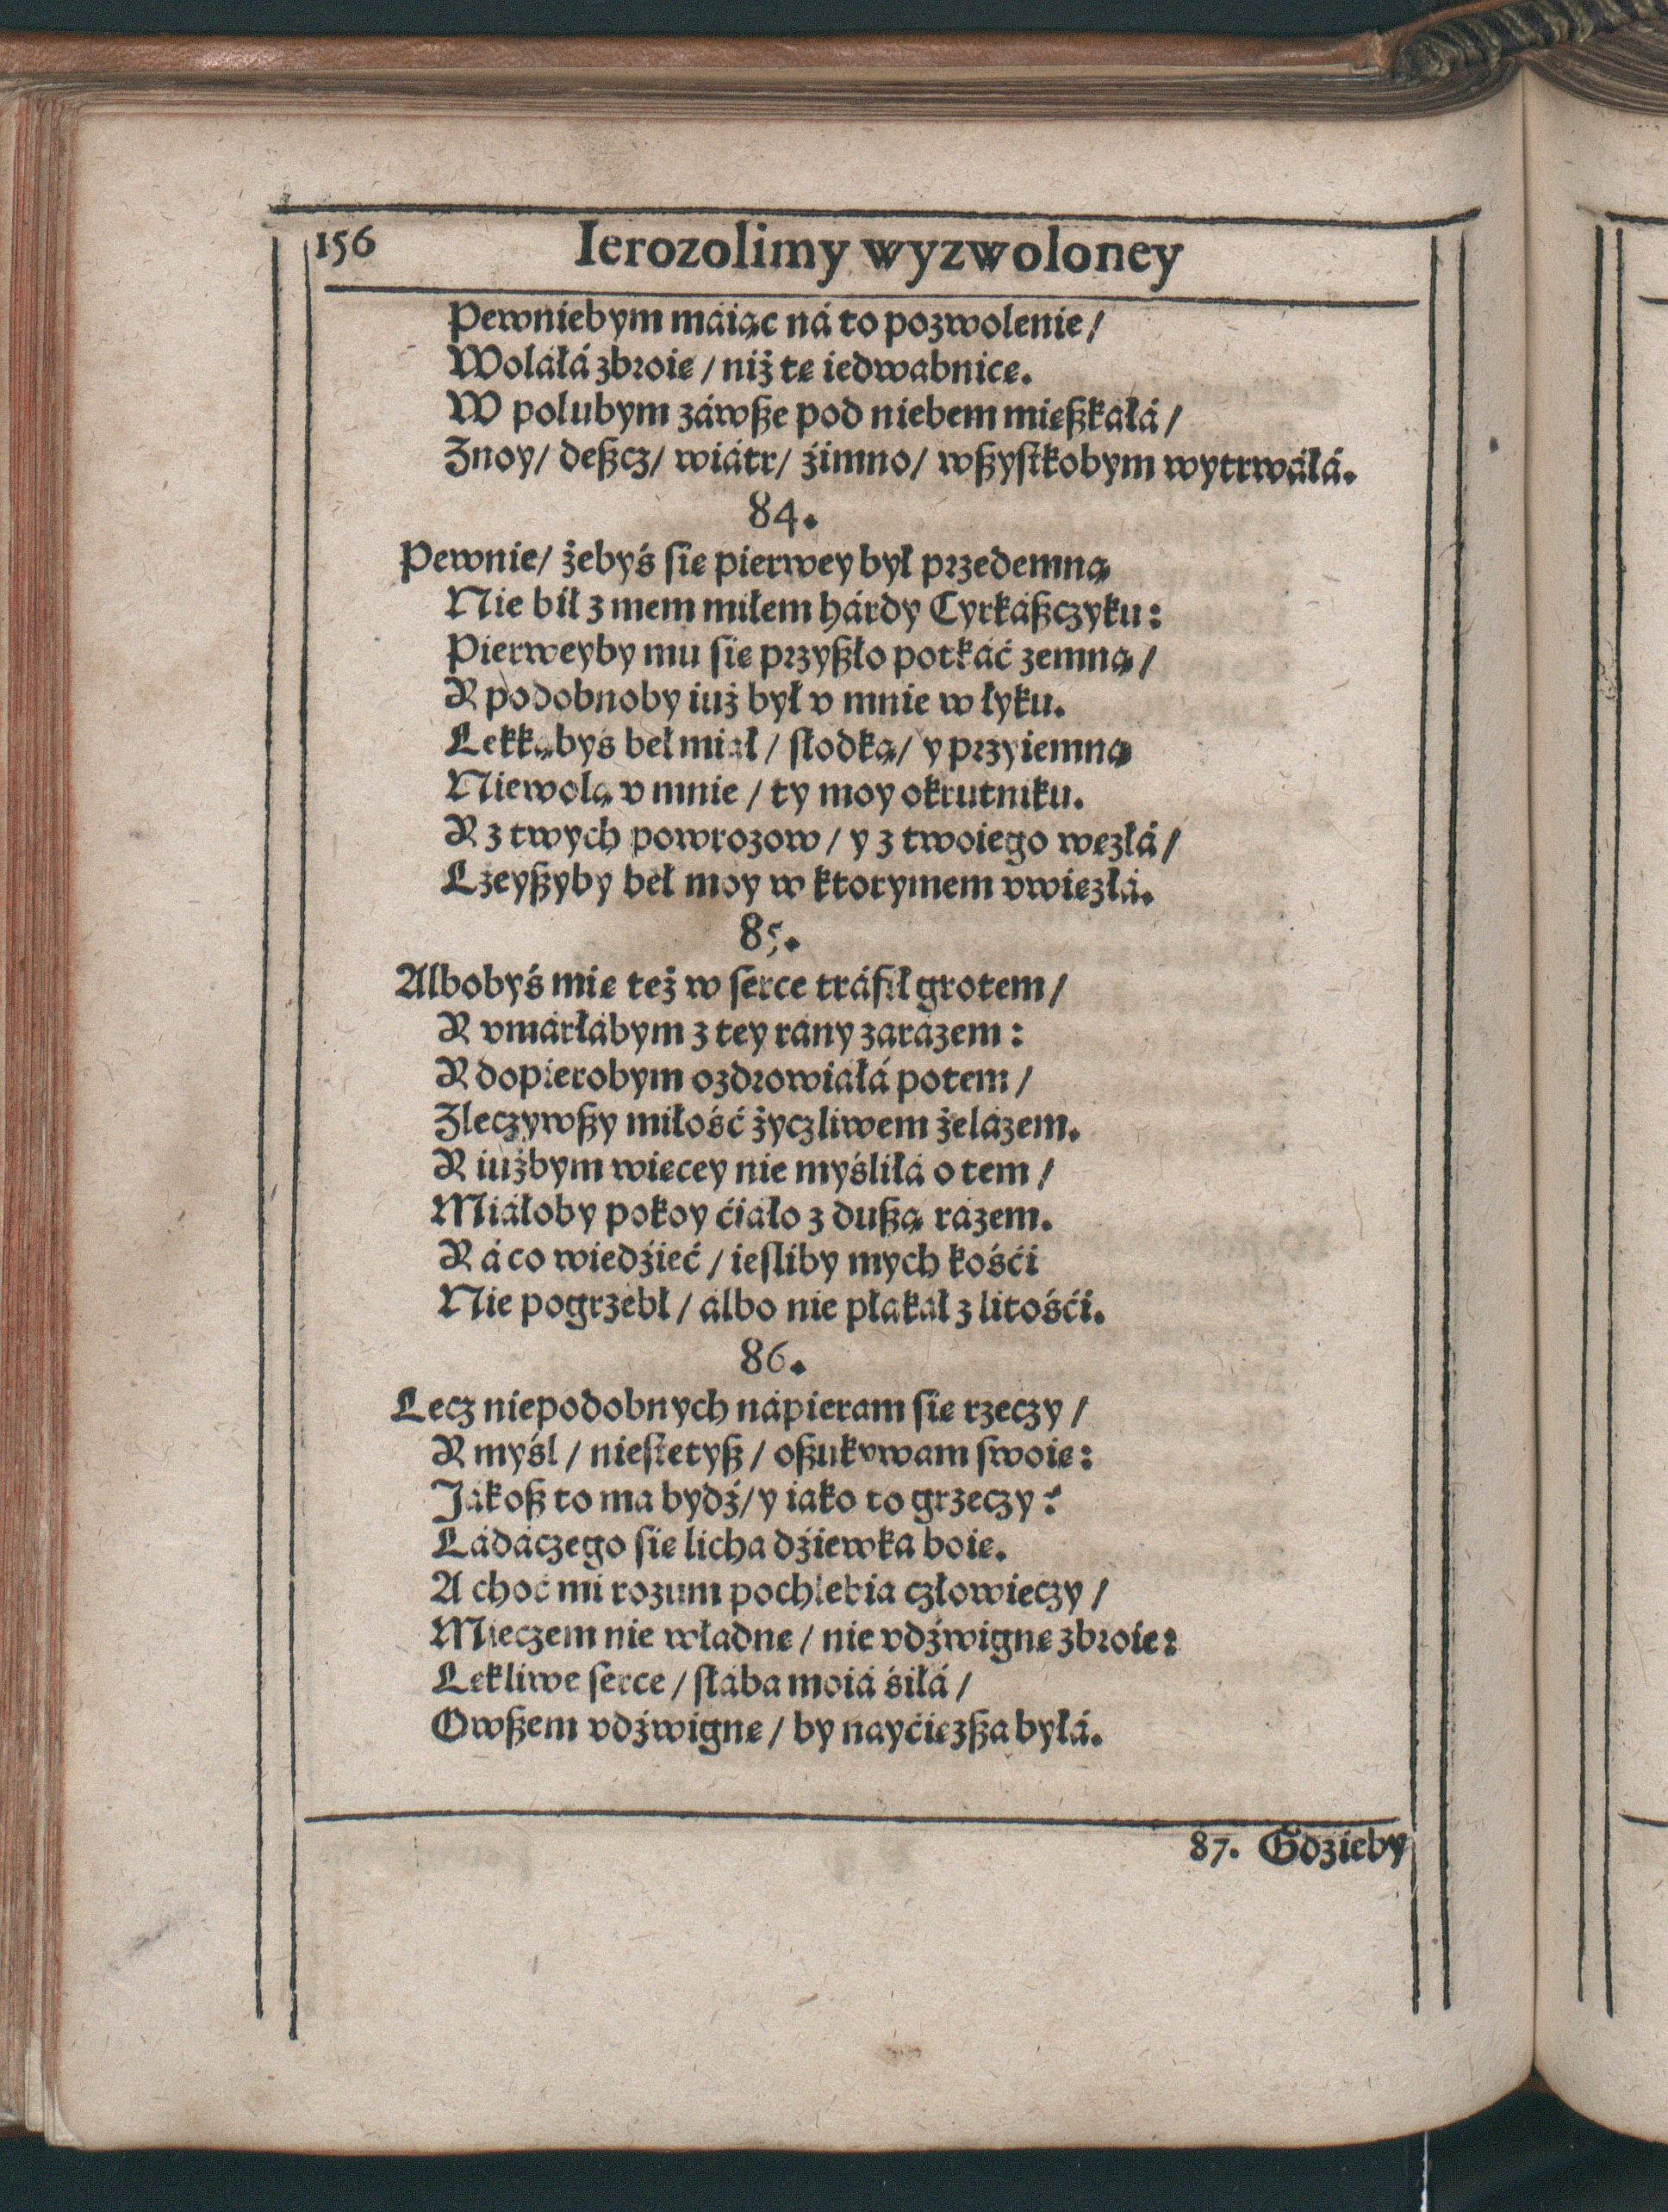 156 Ierozolimy wyzwoloney
Pewniebym máiąc ná to pozwolenie /
Woláłá zbroię / niż te iedwabnice.
W polubym záwsze pod niebem mieszkáłá /
Znoy / deszcz / wiátr / źimno / wszystkobym wytrwáłá.
84.
Pewnie / żebyś się pierwey był przedemną
Nie bił z mem miłem hárdy Cyrkászczyku:
Pierweyby mu się przyszło potkáć zemną /
A podobnoby iuż był v mnie w łyku.
Lekkąbyś beł miał / słodką / y przyiemną
Niewolą v mnie / ty moy okrutniku.
A z twych powrozow / y z twoiego węzłá /
Lżeyszyby beł moy w ktorymem vwięzłá.
85.
Albobyś mię też w serce tráfił grotem /
A vmárłábym z tey rány zárázem:
A dopierobym ozdrowiáłá potem /
Zleczywszy miłość życzliwem żelázem.
A iużbym więcey nie myśliłá o tem /
Miáłoby pokoy ćiáło z duszą rázem.
A á co wiedźieć / iesliby mych kośći
Nie pogrzebł / álbo nie płákał z litośći.
86.
Lecz niepodobnych nápieram się rzeczy /
A myśl / niestetysz / oszukywam swoię:
Jákosz to ma bydź / y iáko to grzeczy?
Ládáczego się licha dźiewka boię.
A choć mi rozum pochlebia człowieczy /
Mieczem nie władnę / nie vdźwignę zbroie:
Lękliwe serce / słába moiá śiłá /
Owszem vdźwignę / by nayćięższa byłá.
87. Gdzieby